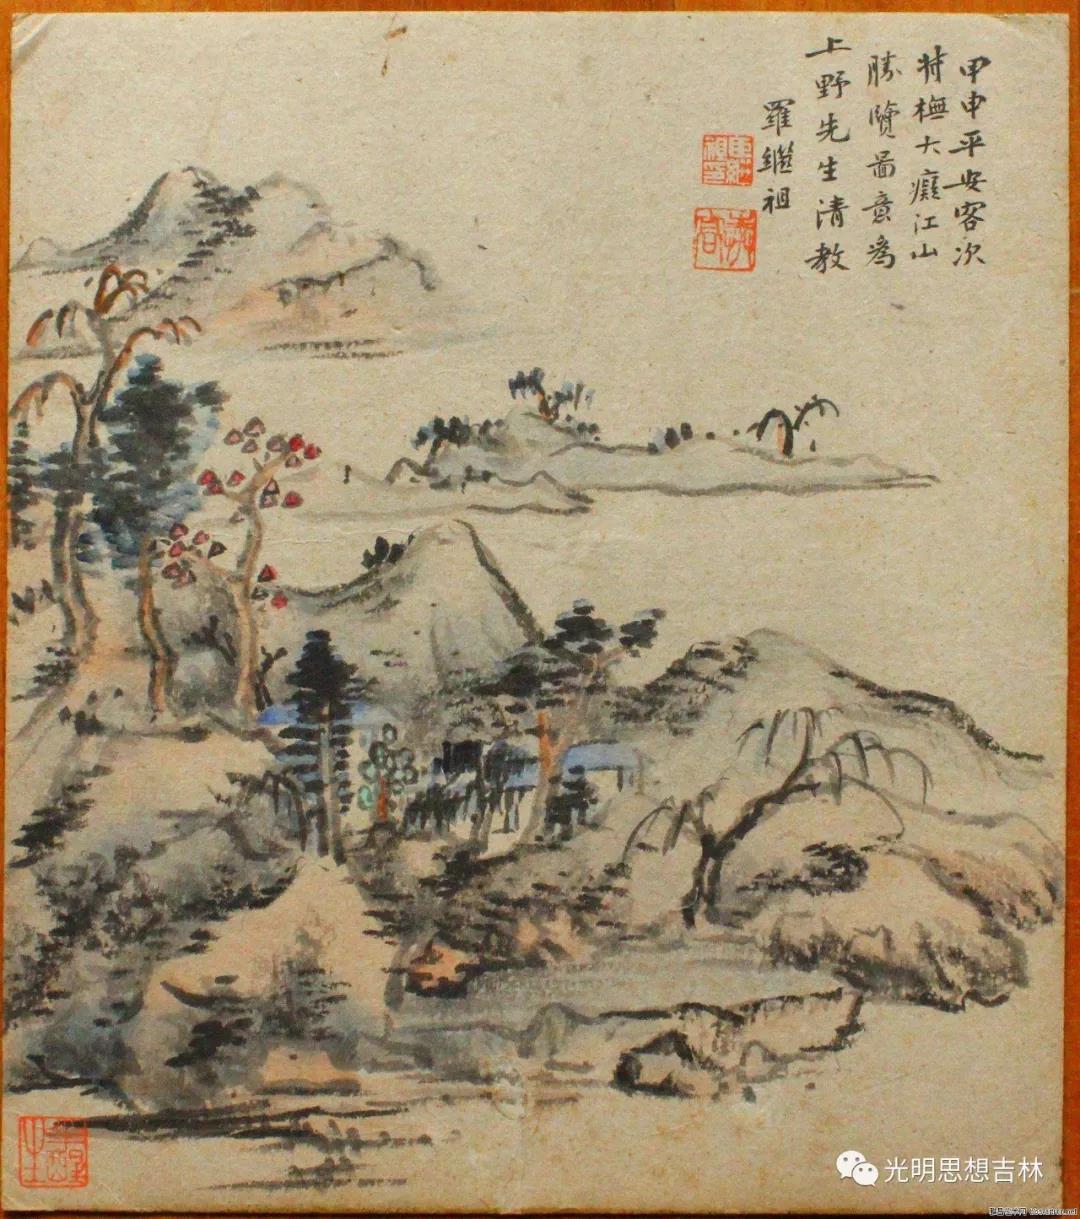 甲申平安客次
特橅大癡江山
勝覽圖意為
上野先生清教
羅繼祖
光明思想吉林